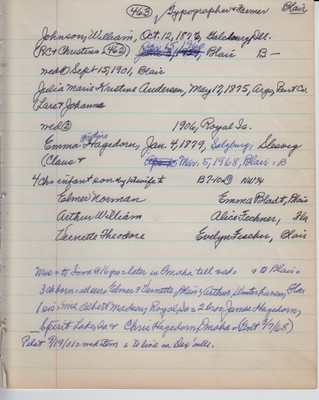 463 Typographer & Farmer Blair
Johnson, William, Oct. 12, 1876, Del.
(RC & Christina 462) Blair B—
wed ① Sept 15, 1901, Blair
Julia Marie Kristine Andersen, May 12, 1875, Argo, Burt Co.
Lars & Johanna
wed ② 1906, Royal, Ia.
Emma Hagedorn, Jan. 4, 1879, Salzburg, Slesvig
(Claus & Mar. 5, 1968, Blair - B
4 Ch & infant son by 1st wife B 7-10 NW 14
Elmer Norman Emma Bladt, Blair
Arthur William Alice Fechner, Fla
Vernette Theodore Evelyn Fischer, Blair
Was to Iowa 16 yrs later in Omaha till ret. & to Blair -
3 Ch born - all surv Elmer & Vernette, Blair, Arthur, Winterhaven, Fla
1 sis Mrs. Albert Madsen, Royal, Ia & 2 bros James Hagedorn,
Spirit Lake, Ia & Chris Hagedorn, Omaha - (Ent 3/7/68)
Pilot 9/19/01